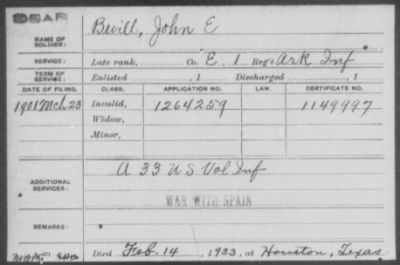 NAME OF SOLDIER: Bevill, John E
SERVICE: Late rank, Co. E, 1 Reg't Ark Inf
TERM OF SERVICE: Enlisted , 1 Discharged , 1
DATE OF FILING. CLASS. APPLICATION NO. LAW. CERTIFICATE NO.
1901 Mch 23 Invalid, 1264259 1149997
Widow,
Minor,
ADDITIONAL SERVICES: A 33 U S Vol Inf
WAR WITH SPAIN
REMARKS:
Died Feb. 14, 1933, at Houston, Texas